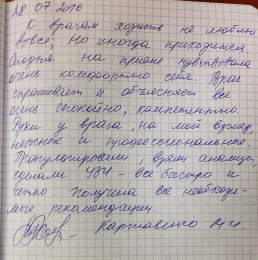 28 07 2016
К врачам ходить не люблю
вовсе, но иногда приходится.
Сегодня на приеме чувствовала
очень комфортно себя. Врач
спрашивает и объясняет все
очень спокойно, компетентно.
Руки у врача, на мой взгляд,
нежные и профессиональные.
взяли анализы,
сделали УЗИ - все быстро и
четко получила все необходи-
мые рекомендации.